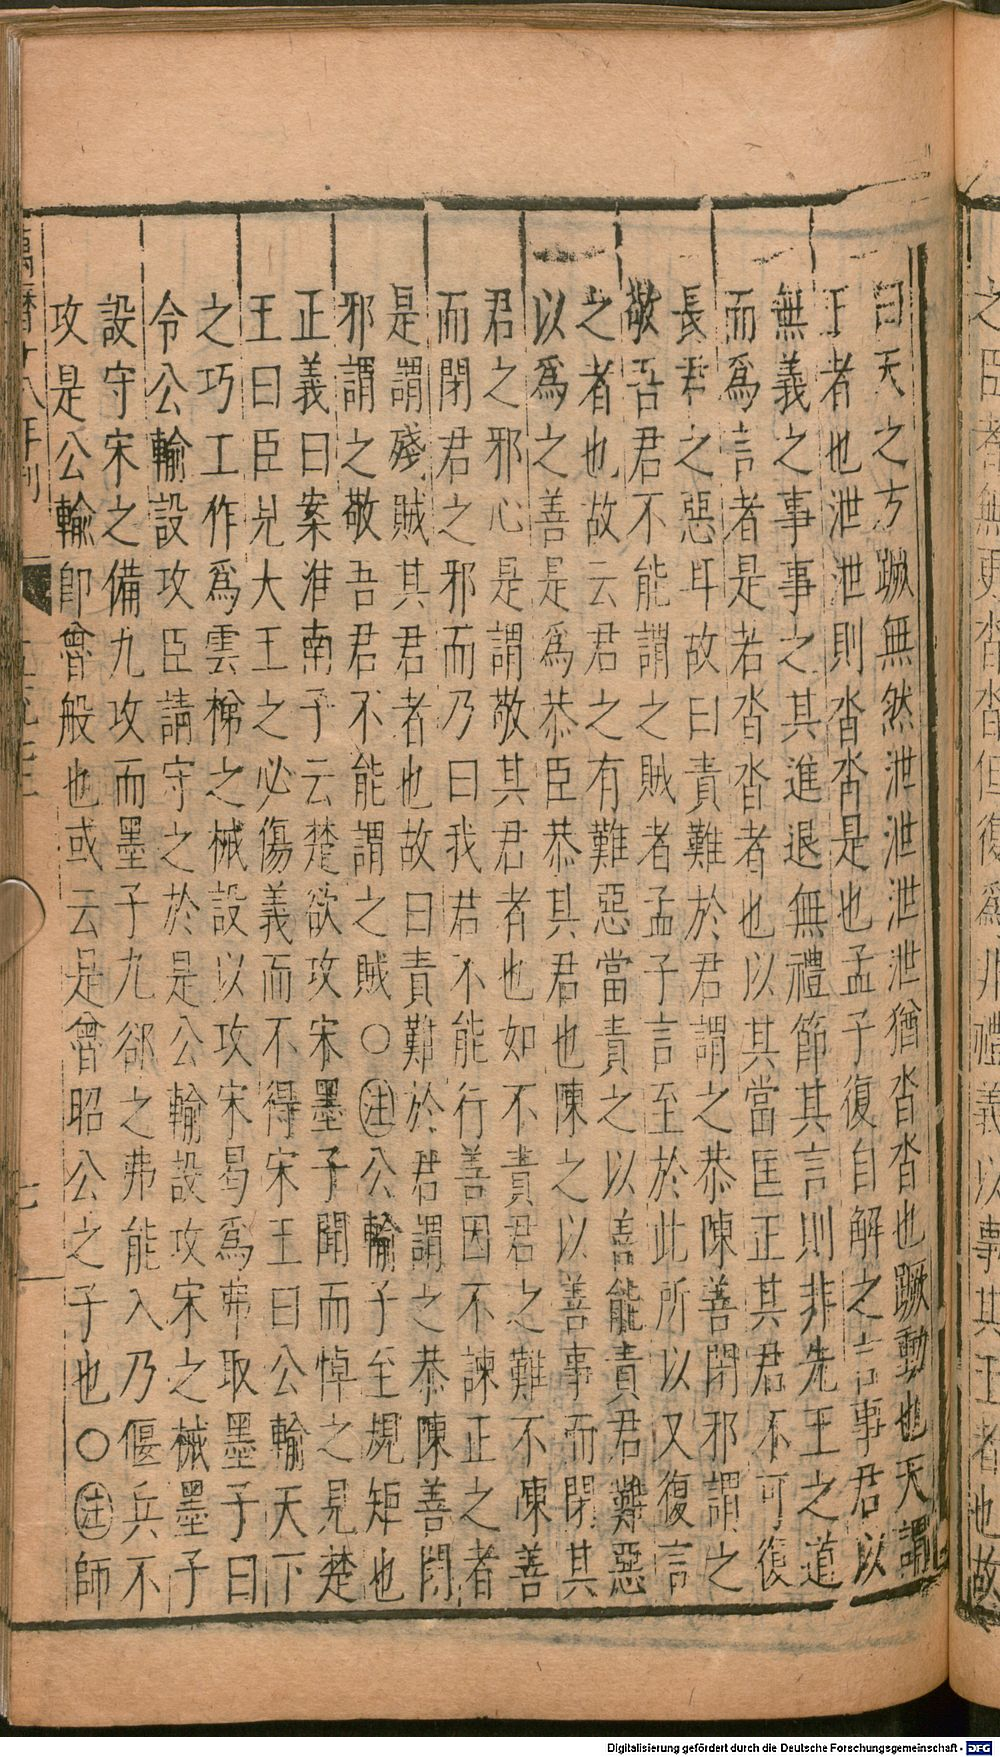 曰天之方蹶無然泄泄泄泄猶沓沓也蹶動也天謂
王者也泄泄則沓沓是也孟子復自解之言事君以
無義之事事之其進退無禮節其言則非先王之道
而爲言者是若沓沓者也以其當匡正其君不可復
長君之惡耳故曰責難於君謂之恭陳善閉邪謂之
敬吾君不能謂之賊者孟子言至於此所以又復言
之者也故云君之有難惡當責之以善能責君難惡
以爲之善是爲恭臣恭其君也陳之以善事而閉其
君之邪心是謂敬其君者也如不責君之難不陳善
而閉君之邪而乃曰我君不能行善因不諫正之者
是謂殘賊其君者也故曰責難於君謂之恭陳善閉
邪謂之敬吾君不能謂之賊○注公輸子至規矩也
正義曰案淮南子云楚欲攻宋墨子聞而悼之見楚
王曰臣見大王之必傷義而不得宋王曰公輸天下
之巧工作爲雲梯之械設以攻宋曷爲弗取墨子曰
令公輸設攻臣請守之於是公輸設攻宋之械墨子
設守宋之備九攻而墨子九郤之弗能入乃偃兵不
攻是公輸即魯般也或云是魯昭公之子也○注師
萬曆十八年刊
七
之臣者無更沓沓但復爲非禮義以事其王者也故
Digitalisierung gefördert durch die Deutsche Forschungsgemeinschaft - DFG